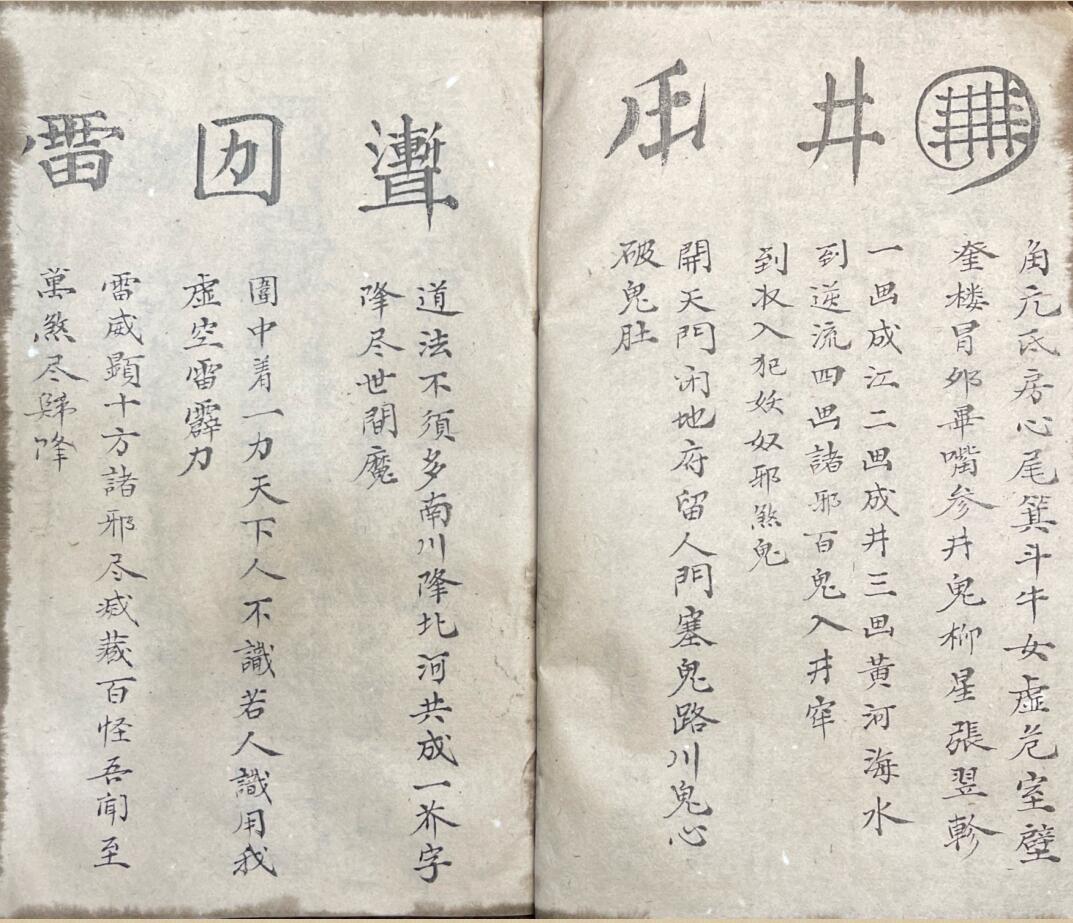 井
角亢氐房心尾箕斗牛女虚危室壁
奎楼胃昴畢嘴参井鬼柳星張翌軫
一画成江二画成井三画黄河海水
到逆流四画諸邪百鬼入井窂
到收入犯妖奴邪煞鬼
開天門闭地府留人門塞鬼路川鬼心
破鬼肚
囡
雷
道法不須多南川降北河共成一个字
降尽世間魔
圍中着一力天下人不識若人識用我
虚空雷霹力
雷威顕十方諸邪尽减藏百怪吾聞至
萬煞尽歸降